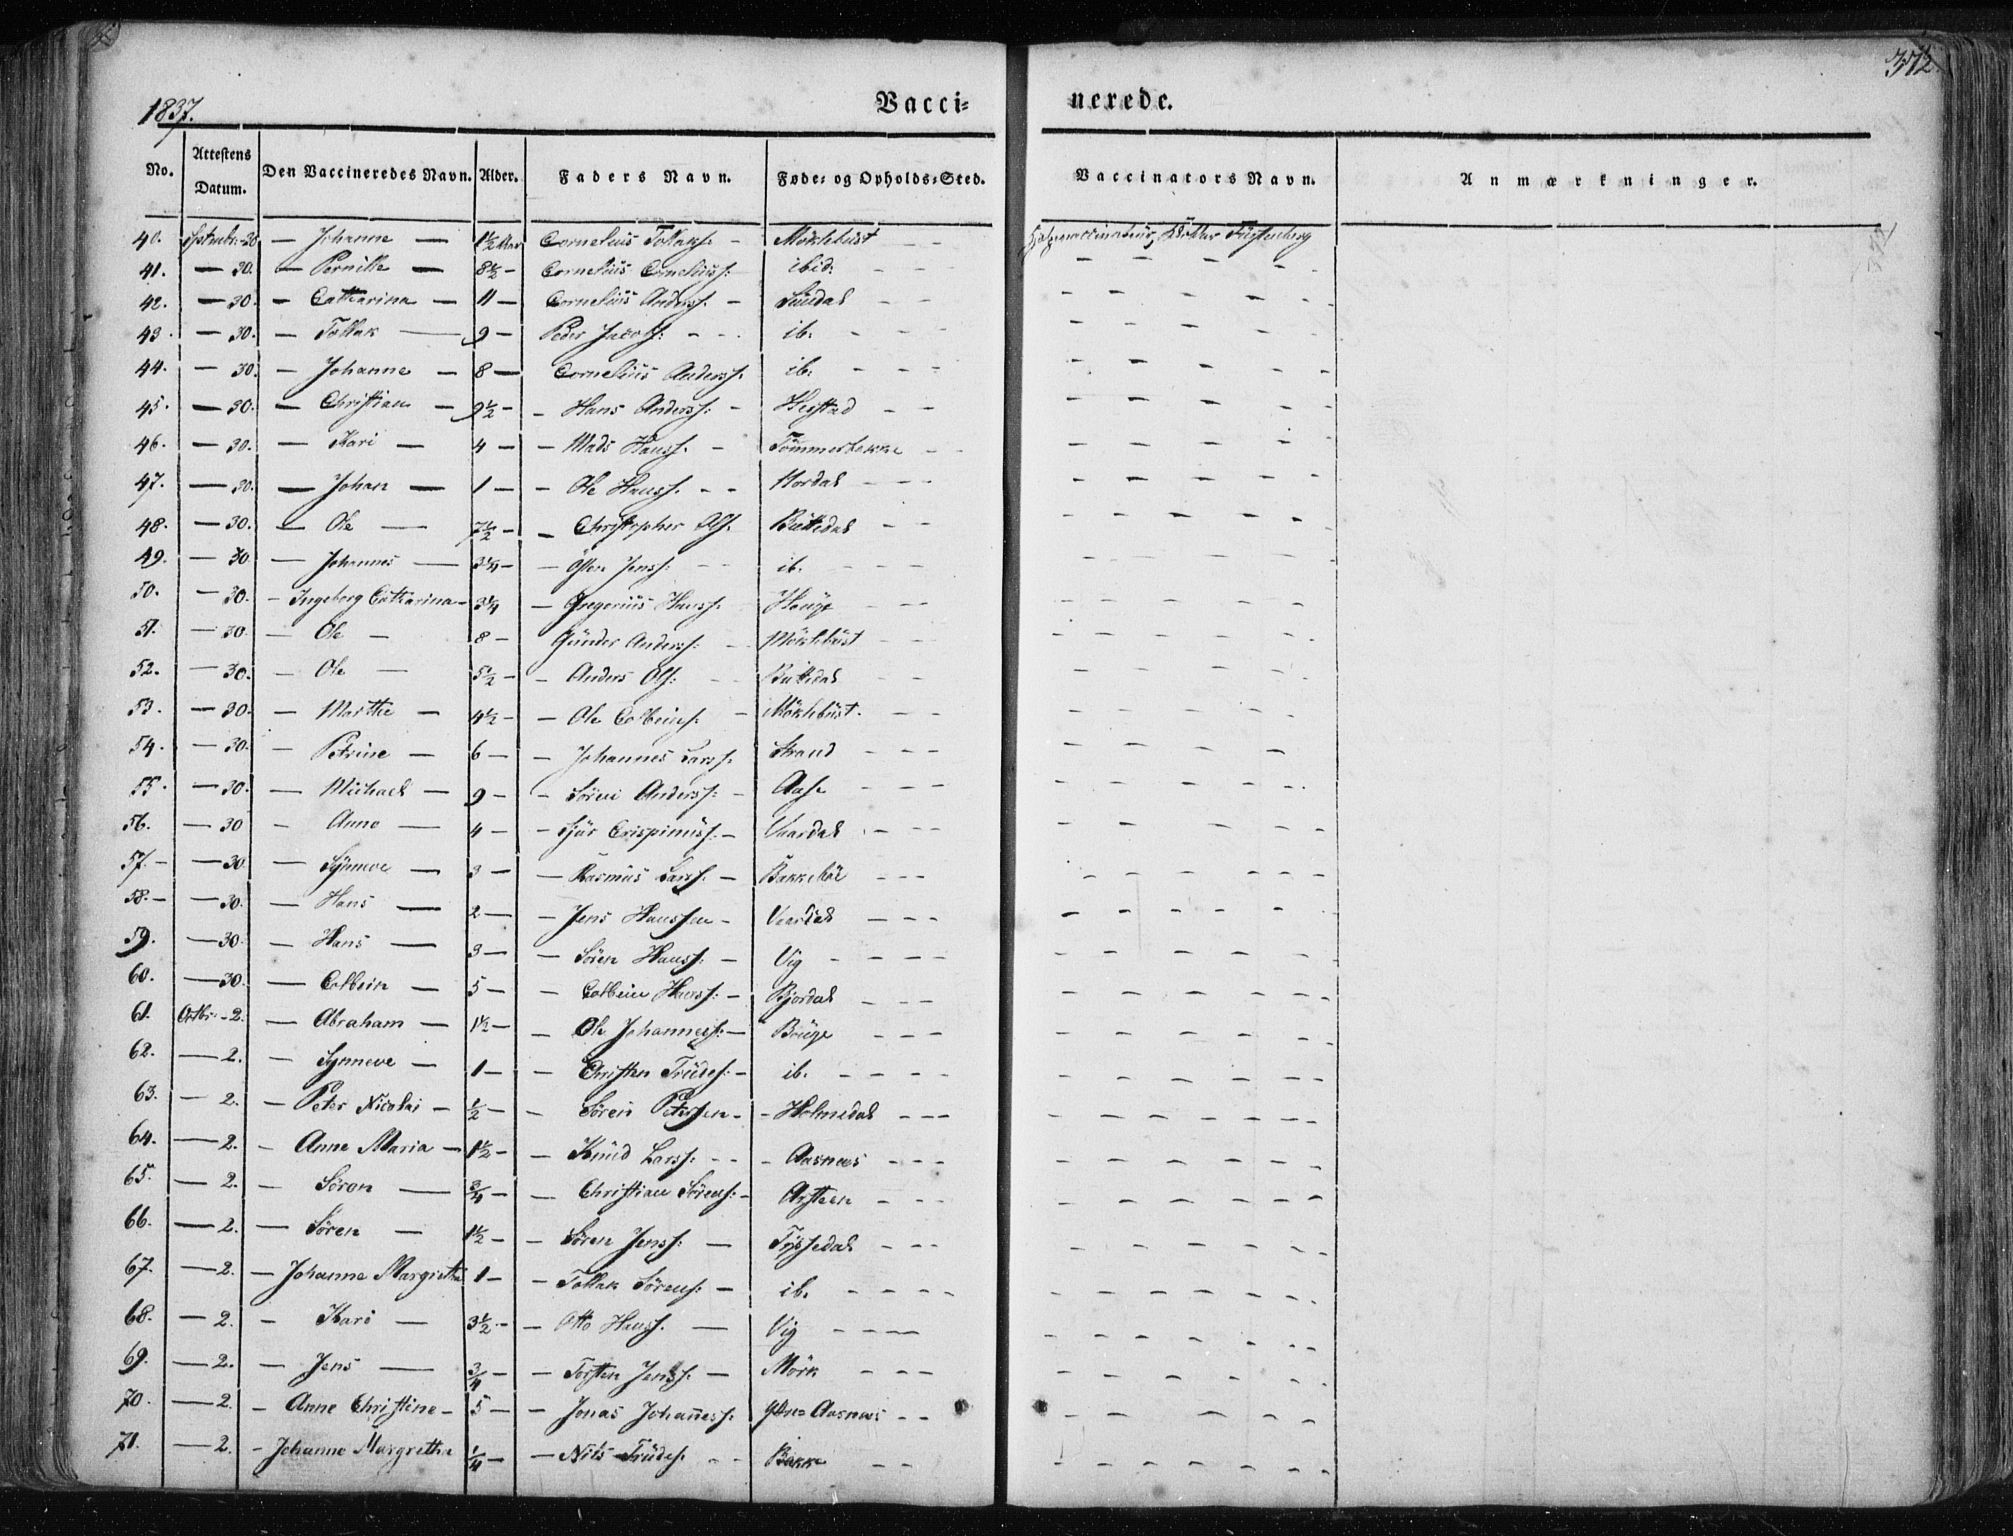 1837.
Vacci= nerede.
372.
No. Attestens Datum. Den Vaccineredes Navn. Alder. Faders Navn. Føde= og Opholds=Sted. Vaccinators Navn. Anmærkninger.
40. Septembr.-30 — Johanne — 1½ Aar Cornelius Tollaks: - Möklebust - -
41. — 30. — Pernille — 8½ - Cornelius Corneliuss: ibid: - - -
42. — 30. - Catharina — 11 — Cornelius Anderss. - Sündal - -
43. — 30. — Tollak — 9 - Peder Jacobs: - - - ib. - - -
44. — 30. — Johanne — 8 — Cornelius Anderss. ib. - - -
45. — 30. - Christian — 9½ - - Hans Anderss: - Hestad - -
46. — 30. — Kari — 4 - - Mads Hanss. - Tömmerbekke - -
47. — 30. — Johan — 1 — - Ole Hanss. - - Nordal - - -
48. — 30. — Ole — 7½ - - Christopher Ols. Büttedal - -
49. — 30 — Johannes — 3¼ - - Osten Jenss: - - ib. - - -
50. — 30. - Ingeborg Catharina - 3¼ - Gregorius Hanss. Hauge - - -
51. — 30. — Ole — 8 - Günder Anderss: - - Möklebüst - -
52. — 30. — Ole — 5½ - - Anders Ols: - - Büttedal - -
53. — 30. — Marthe - 4½ - - Ole Colbeins. - Möklebüst. - - -
54. — 30. — Petrine — 6 - - Johannes Larss. Strand - - -
55. — 30. — Michael — 9 - - Sören Anderss: - Aase - - -
56. — 30 - Anne — 4 - - Sjür Crispinüss. - Vaardal - - -
57. - — 30. — Synneve — 3 - - Rasmus Larss. - Bakkeböe - - -
58. - — 30. — Hans — 2 — - Jens Hanssen - Vaardal - - -
59. — 30. — Hans — 3 - - Sören Hanss: - Vig - - - -
60. — 30. — Colbein - 5 - - Colbein Hanss: - Bjordal - - -
61. Octbr. - 2. — Abraham — 1½ - - Ole Johanness: - Brüge - - -
62. — 2. — Synneve — 1 - - Christen Trüdes: - ib. - - - -
63. — 2. - Peter Nicolai - ½ - - Sören Peterssen - - Holmedal - - -
64. — 2. - Anne Maria - 1½ - - Knüd Larss: - - - Aasnæs - - -
65. — 2. - Sören — ¾ - - Christian Sörens: - Aasteen - - -
66. — 2. — Sören — 1½ - - Sören Jenss: — Tyssedal - - -
67. — 2. — Johanne Margretha 1 - - Tollak Sörens: - ib. - - - -
68. — 2. - Kari — 3½ - - Otto Hanss. — Vig - - - -
69. — 2. — Jens — ¾ - - Torsten Jenss: — Mörk - - -
70. — 2. - Anne Christine - 5 - - Jonas Johañess: Aasnæs - -
71. — 2. - Johanne Margretha ¼ - - Nils Trüdes. - - Bakke - -